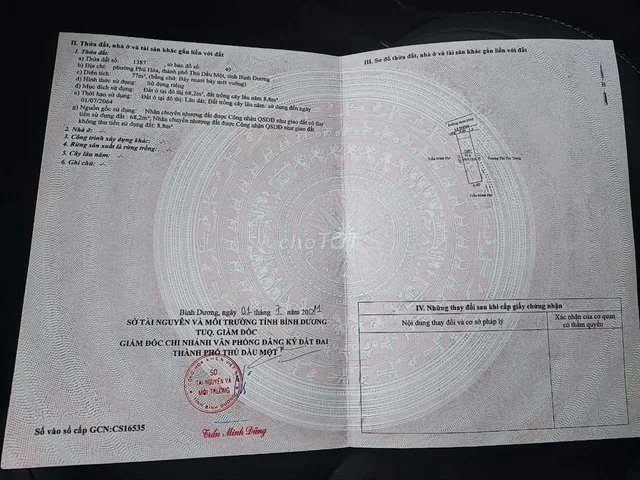 II. Thửa đất, nhà ở và tài sản khác gắn liền với đất
1. Thửa đất:
a) Thửa đất số: 1387 , tờ bản đồ số: 49
b) Địa chỉ: phường Phú Hòa, thành phố Thủ Dầu Một, tỉnh Bình Dương
c) Diện tích: 77m², (bằng chữ: Bảy mươi bảy mét vuông)
d) Hình thức sử dụng: Sử dụng riêng
đ) Mục đích sử dụng: Đất ở tại đô thị 68,2m²; đất trồng cây lâu năm 8,8m²
e) Thời hạn sử dụng: Đất ở tại đô thị: Lâu dài; Đất trồng cây lâu năm: sử dụng đến ngày
01/07/2064
g) Nguồn gốc sử dụng: Nhận chuyển nhượng đất được Công nhận QSDĐ như giao đất có thu
tiền sử dụng đất: 68,2m²; Nhận chuyển nhượng đất được Công nhận QSDĐ như giao đất
không thu tiền sử dụng đất: 8,8m²
2. Nhà ở: -/-
3. Công trình xây dựng khác: -/-
4. Rừng sản xuất là rừng trồng: -/-
5. Cây lâu năm: -/-
6. Ghi chú: -/-
Bình Dương, ngày 01 tháng 7 năm 2021
SỞ TÀI NGUYÊN VÀ MÔI TRƯỜNG TỈNH BÌNH DƯƠNG
TUQ. GIÁM ĐỐC
GIÁM ĐỐC CHI NHÁNH VĂN PHÒNG ĐĂNG KÝ ĐẤT ĐAI
THÀNH PHỐ THỦ DẦU MỘT
SỞ
TÀI NGUYÊN VÀ
MÔI TRƯỜNG
TỈNH BÌNH DƯƠNG
Trần Minh Đăng
Số vào sổ cấp GCN:CS16535
chợTỐT
III. Sơ đồ thửa đất, nhà ở và tài sản khác gắn liền với đất
B
Trần Minh Đại
Trương Thị Thu Trang
Trần Minh Đại
IV. Những thay đổi sau khi cấp giấy chứng nhận
Nội dung thay đổi và cơ sở pháp lý
Xác nhận của cơ quan
có thẩm quyền